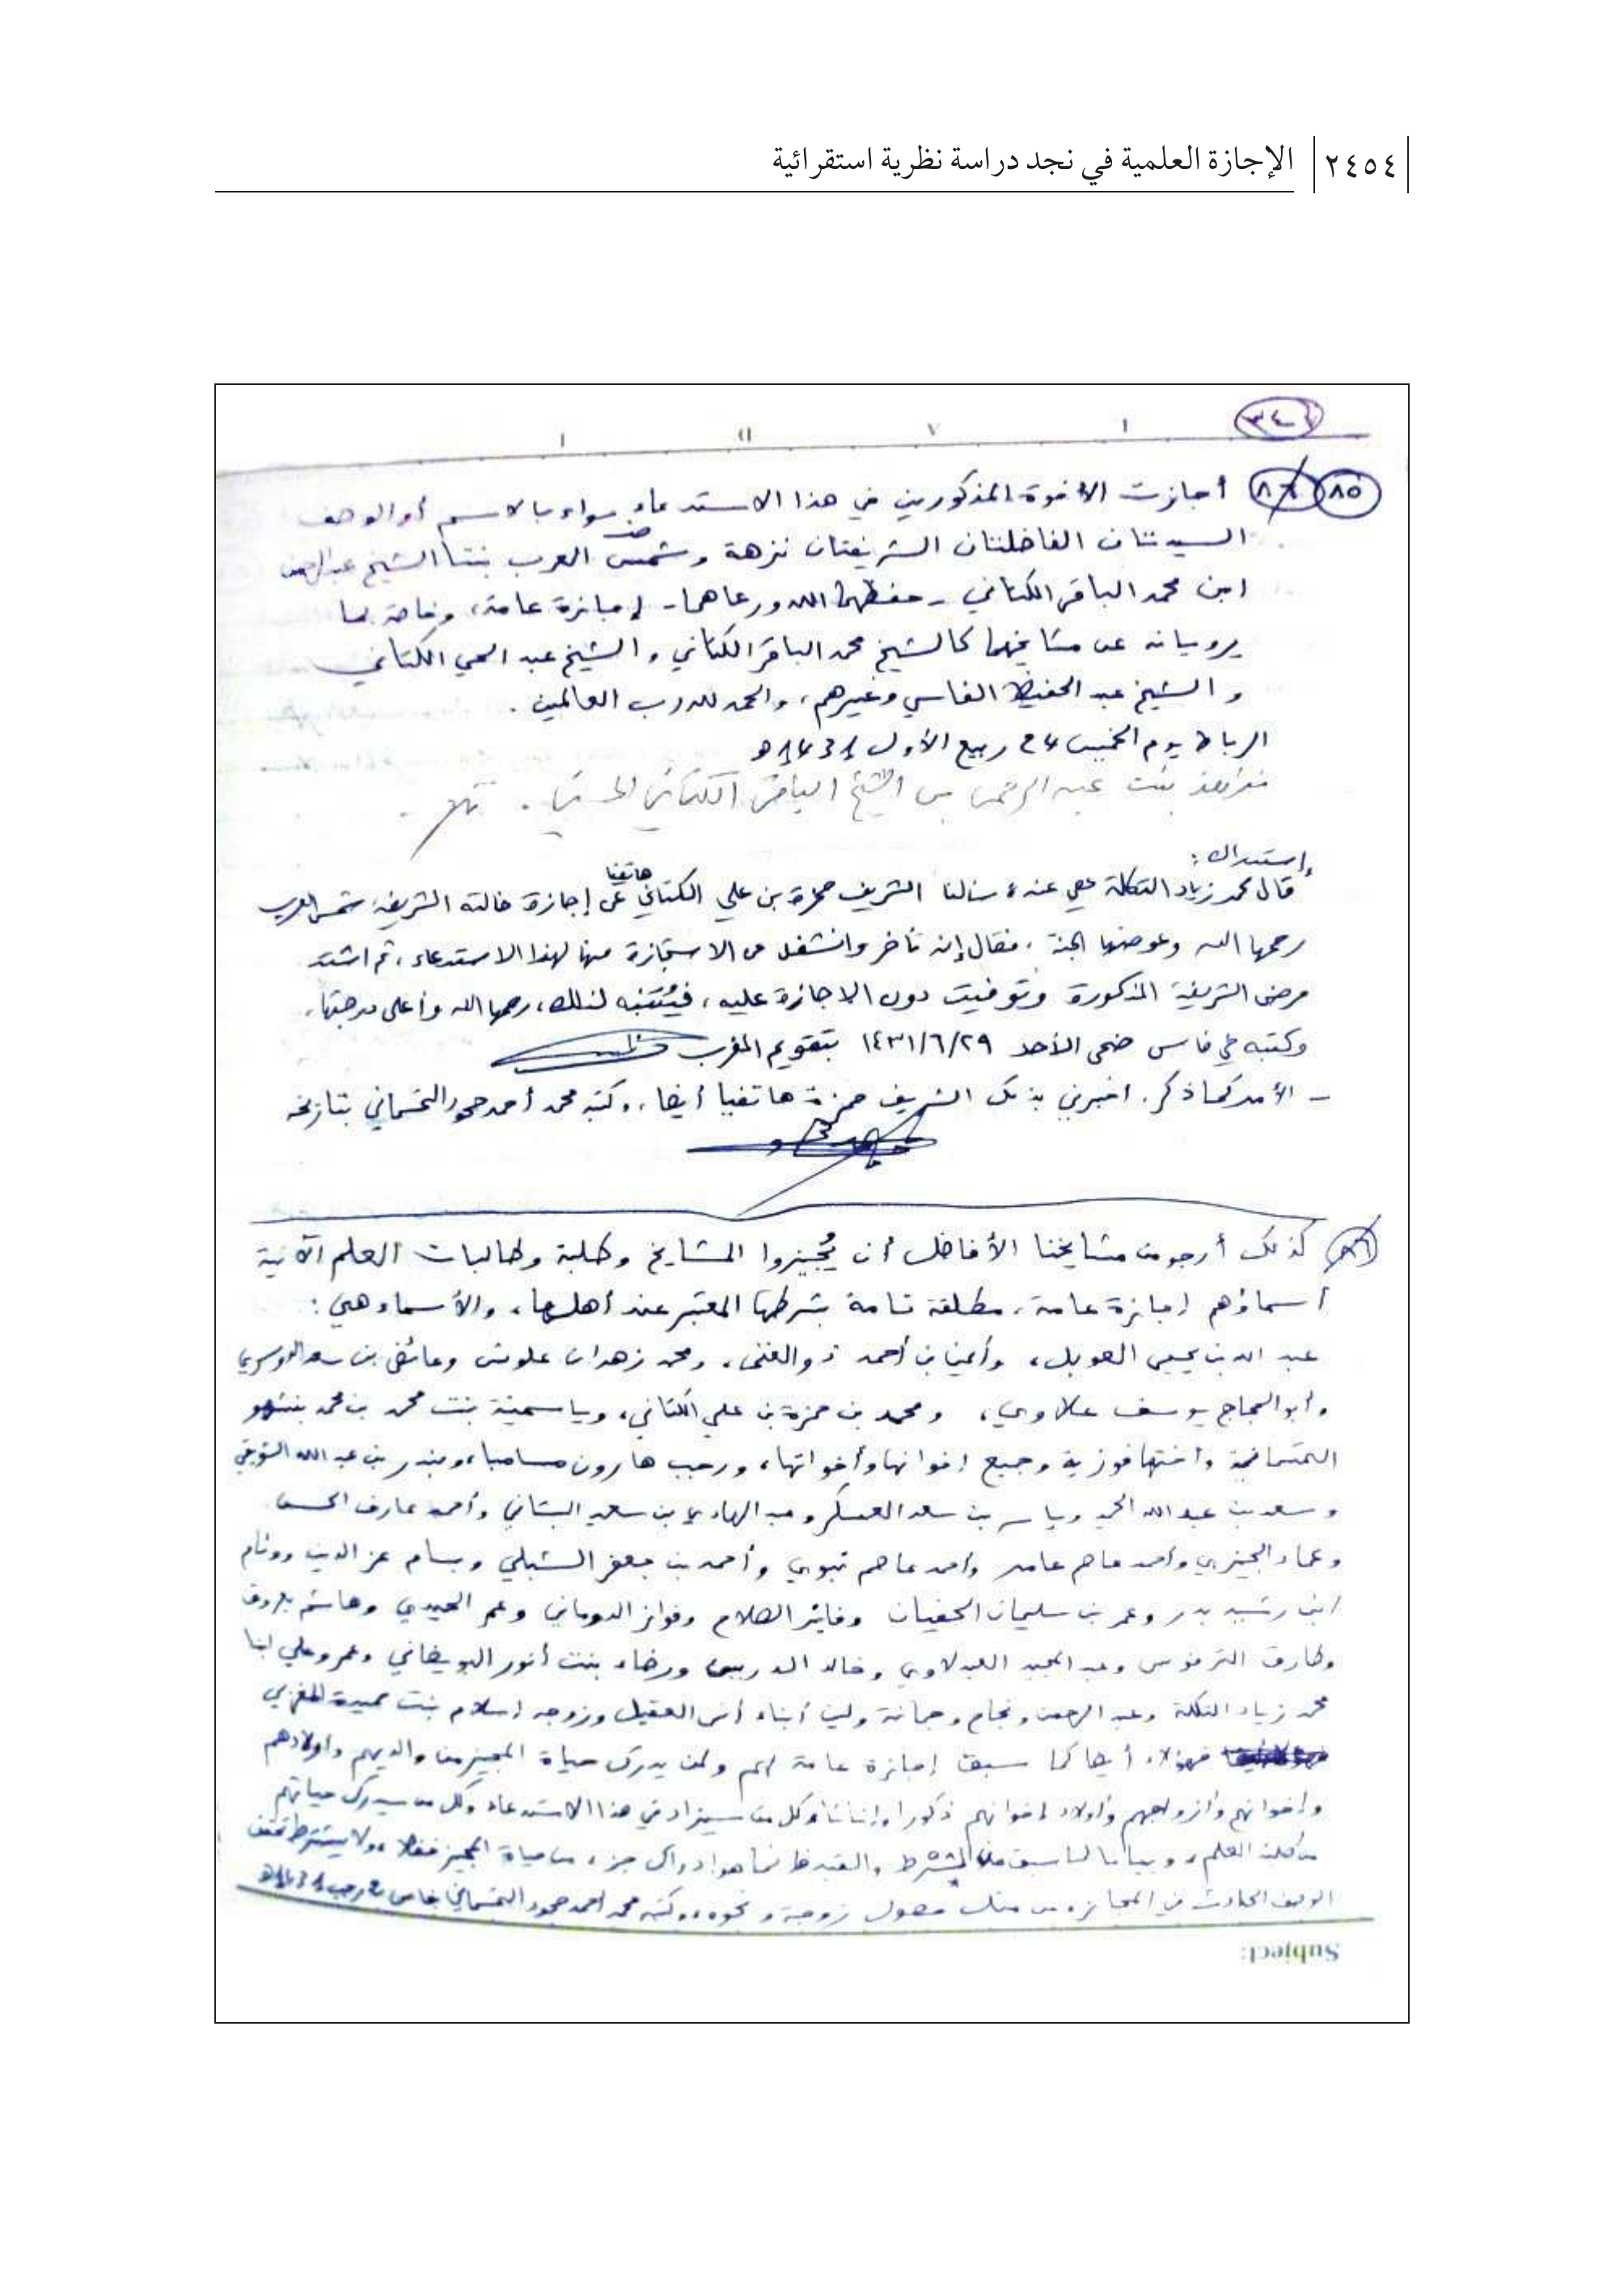 ٢٤٥٤ الإجازة العلمية في نجد دراسة نظرية استقرائية
٨٥ أجازت الأخوة المذكورين في هذا الاستدعاء سواء بالاسم أو الوصف
السيدتان الفاضلتان الشريفتان نزهة وشمس العرب بنتا الشيخ عبد الرحمن
ابن محمد الباقر الكتاني - حفظهما الله ورعاهما - إجازة عامة، وخاصة بما
يرويانه عن مشايخهما كالشيخ محمد الباقر الكتاني والشيخ عبد الحي الكتاني
والشيخ عبد الحفيظ الفاسي وغيرهم، والحمد لله رب العالمين.
الرباط يوم الخميس 24 ربيع الأول 1431 هـ
بنت عبد الرحمن بن الشيخ الباقر الكتاني
إستدراك:
قال محمد زياد التكلة عفي عنه: سألنا الشريف حمزة بن علي الكتاني هاتفيا عن إجازة خالته الشريفة شمس العرب
رحمها الله وعوضها الجنة، فقال إنه تأخر وانشغل عن الاستجازة منها لهذا الاستدعاء، ثم اشتد
مرض الشريفة المذكورة وتوفيت دون الاجازة عليه، فيُتنبه لذلك، رحمها الله وأعلى درجتها،
وكتبه في فاس ضحى الأحد ١٤٣١/٦/٢٩ بتقويم المغرب
- الأمر كما ذكر. اخبرني بذلك الشريف حمزة هاتفيا أيضا، وكتبه محمد أحمد حجود التمسماني بتاريخه
كذلك أرجو من مشايخنا الأفاضل أن يُجيزوا المشايخ وطلبة وطالبات العلم الآتية
أسماؤهم إجازة عامة، مطلقة تامة بشرطها المعتبر عند أهلها، والأسماء هي:
عبد الله بن يحيى العوبل، وأيمن بن أحمد ذو الغنى، ومحمد زهران علوش وعائض بن سعد الدوسري
وأبو الحجاج يوسف علاوي، ومحمد بن حمزة بن علي الكتاني، وياسمينة بنت محمد بن محمد
التمسمانية وأختها فوزية وجميع إخوانها وأخواتها، ورجب هارون مسامبا، وبندر بن عبد الله الشويقي
وسعد بن عبد الله وياسر بن سعد العسكر وعبد الهادي بن سعيد البستاني وأحمد عارف
وعماد الجيزي وأحمد عاصم عامر وأحمد عاصم نبوي وأحمد بن جعفر الشبلي وبسام عز الدين ووئام
ابن رشيد بدر وعمر بن سليمان الحفيان وفايز الصلاح وفواز الدوماني وعمر الحيدي وهاشم
وطارق الترموس وعبد المجيد العبدلاوي وخالد الدريس ورضاء بنت أنور البويضاني وعمر وعلي ابنا
محمد زياد التكلة وعبد الرحمن ونجاح وجمانة ولين أبناء أنس العقيل وزوجه إسلام بنت
فهؤلاء أيضا كما سبق إجازة عامة لهم ولمن يدرك حياة المجيز من والديهم وأولادهم
وإخوانهم وأزواجهم وأولاد إخوانهم ذكورا وإناثا وكل من سيزاد في هذا الاستدعاء وكل من سيدرك حياتهم
من طلبة العلم، وبيانا لما سبق من الشرط والقيد فإنما هو ادراك جزء من حياة المجيز فقط، ولا يشترط
الوصف الحادث في المجاز، من مثل حصول زوجية ونحوه، وكتبه محمد أحمد حجود التمسماني بفاس 2 رجب 1431 هـ
Subject: